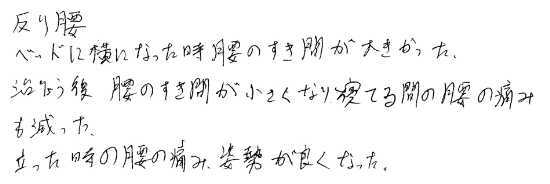 反り腰
ベッドに横になった時腰のすき間が大きかった.
治りょう後 腰のすき間が小さくなり寝てる間の腰の痛み
も減った.
立った時の腰の痛み、姿勢が良くなった.